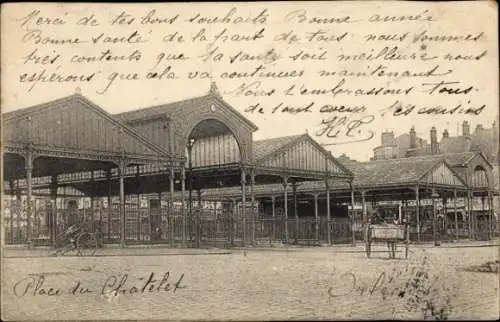 Merci de tes bons souhaits Bonne année
Bonne santé de la part de tous nous sommes
très contents que ta santé soit meilleure nous
espérons que cela va continuer maintenant
Nous t'embrassons tous
de tout cœur tes cousins
Place du Châtelet